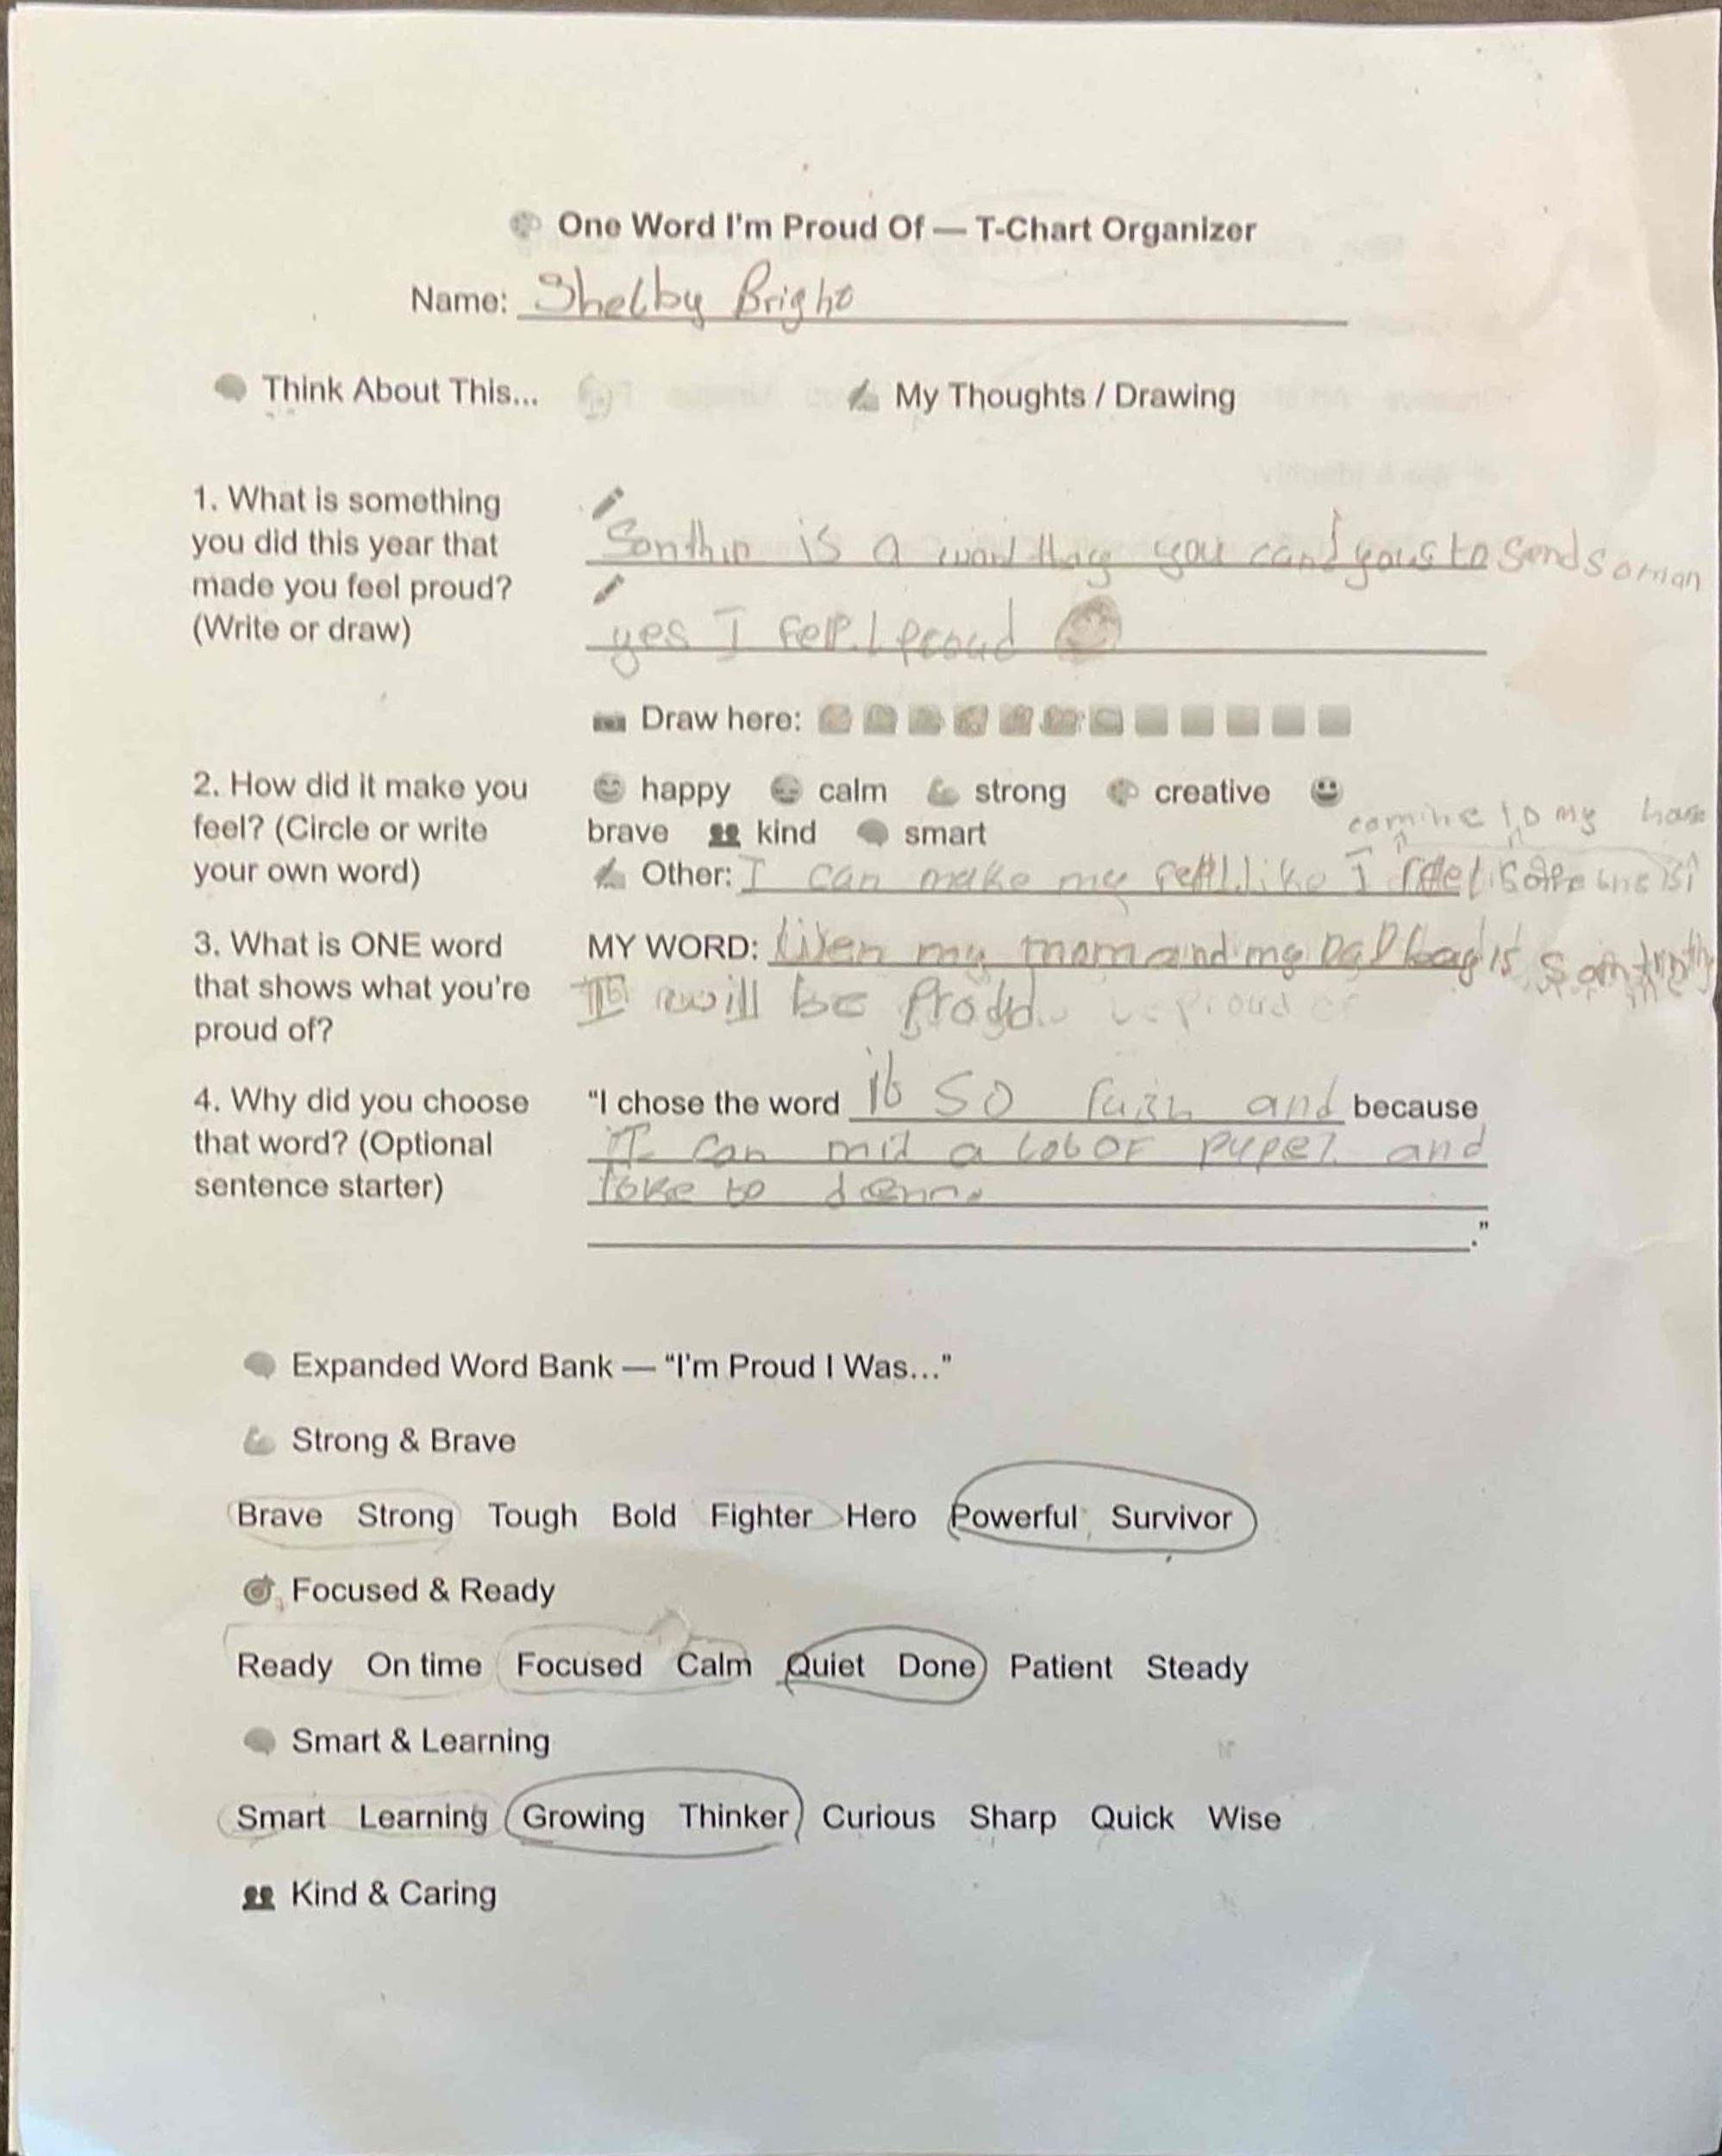 One Word I'm Proud Of — T-Chart Organizer
Name: Shelby Bright
Think About This...
My Thoughts / Drawing
1. What is something
you did this year that
made you feel proud?
(Write or draw)
Sonthin is a you to Send
yes I proud
Draw here:
2. How did it make you
feel? (Circle or write
your own word)
happy calm strong creative
brave kind smart
comine to my
Other: I can make my like I
3. What is ONE word
that shows what you're
proud of?
MY WORD: my mom and my Dad is
I will be Prodd.
4. Why did you choose
that word? (Optional
sentence starter)
"I chose the word it so and because
it can a lob OF and
to
."
Expanded Word Bank — "I'm Proud I Was..."
Strong & Brave
Brave Strong Tough Bold Fighter Hero Powerful Survivor
Focused & Ready
Ready On time Focused Calm Quiet Done Patient Steady
Smart & Learning
Smart Learning Growing Thinker Curious Sharp Quick Wise
Kind & Caring